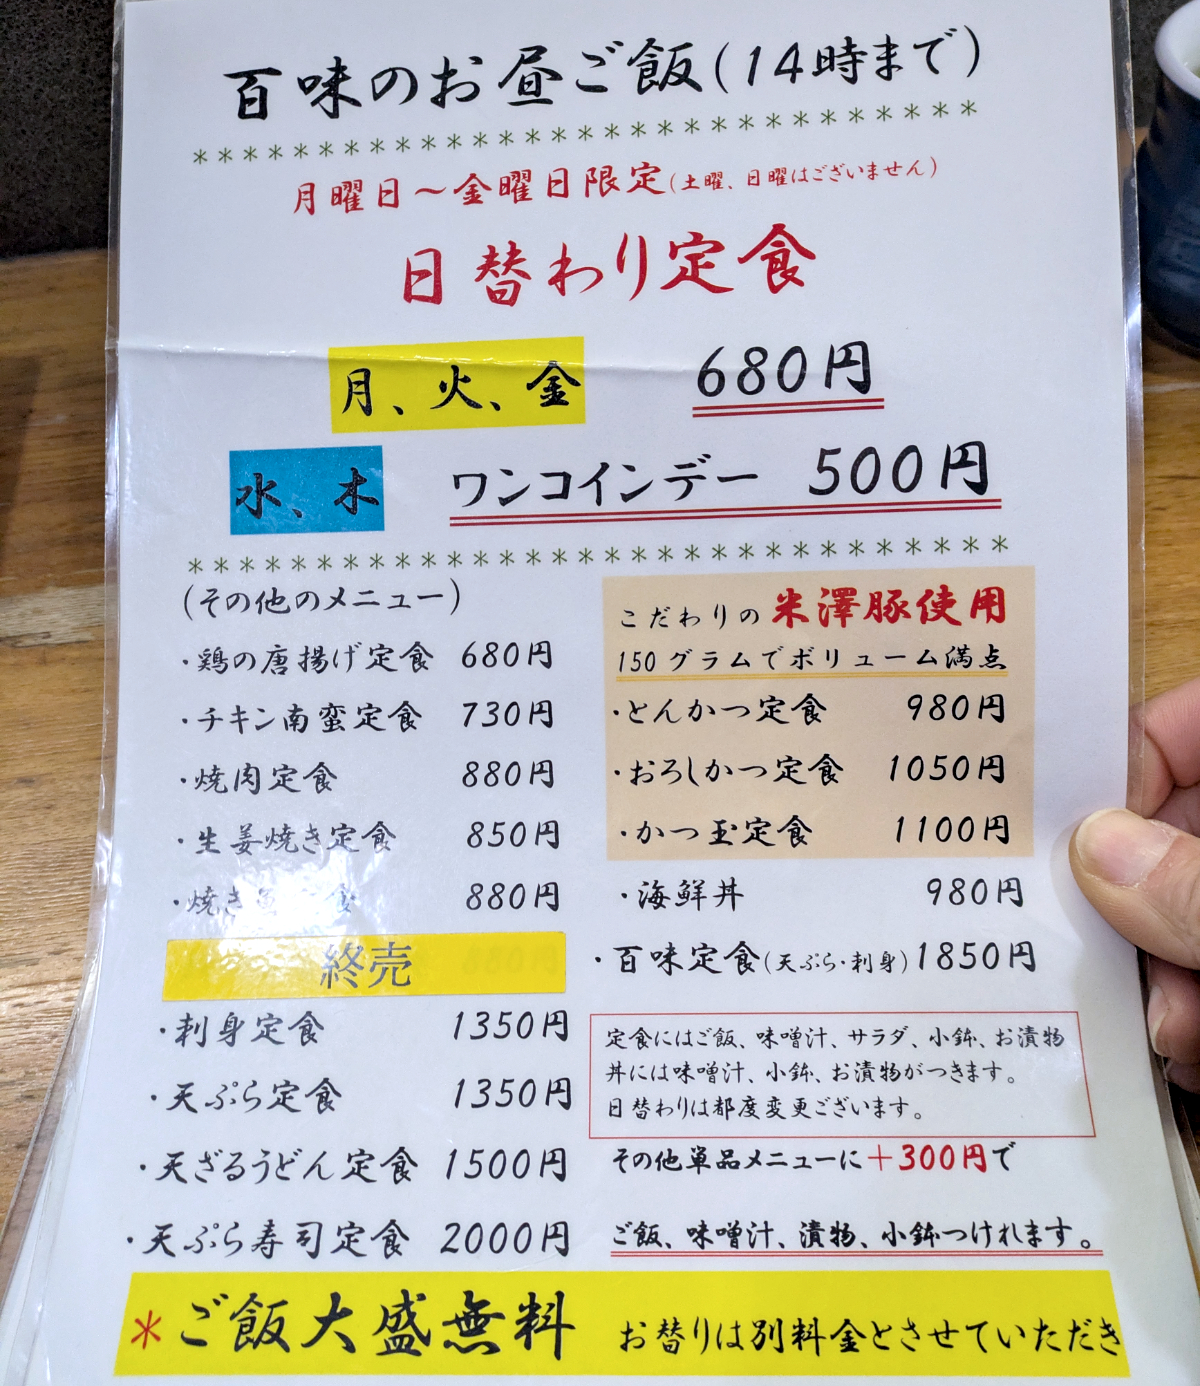 百味のお昼ご飯(14時まで)
********************************
月曜日～金曜日限定(土曜、日曜はございません)
日替わり定食
月、火、金 680円
水、木 ワンコインデー 500円
********************************
(その他のメニュー)
・鶏の唐揚げ定食 680円
・チキン南蛮定食 730円
・焼肉定食 880円
・生姜焼き定食 850円
・焼き魚定食 880円
終売
・刺身定食 1350円
・天ぷら定食 1350円
・天ざるうどん定食 1500円
・天ぷら寿司定食 2000円
こだわりの米澤豚使用
150グラムでボリューム満点
・とんかつ定食 980円
・おろしかつ定食 1050円
・かつ玉定食 1100円
・海鮮丼 980円
・百味定食(天ぷら・刺身)1850円
定食にはご飯、味噌汁、サラダ、小鉢、お漬物
丼には味噌汁、小鉢、お漬物がつきます。
日替わりは都度変更ございます。
その他単品メニューに+300円で
ご飯、味噌汁、漬物、小鉢つけれます。
*ご飯大盛無料 お替りは別料金とさせていただき